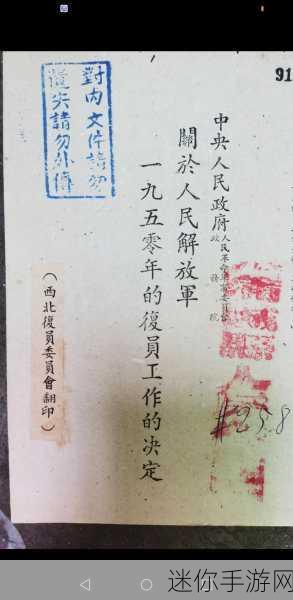 91
中央人民政府
人民革命軍事委員會
政務院
關於人民解放軍
一九五零年的復員工作的决定
#258
對内文件請勿
遺失請勿外傳
（西北復員委員會翻印）
迷你手游网